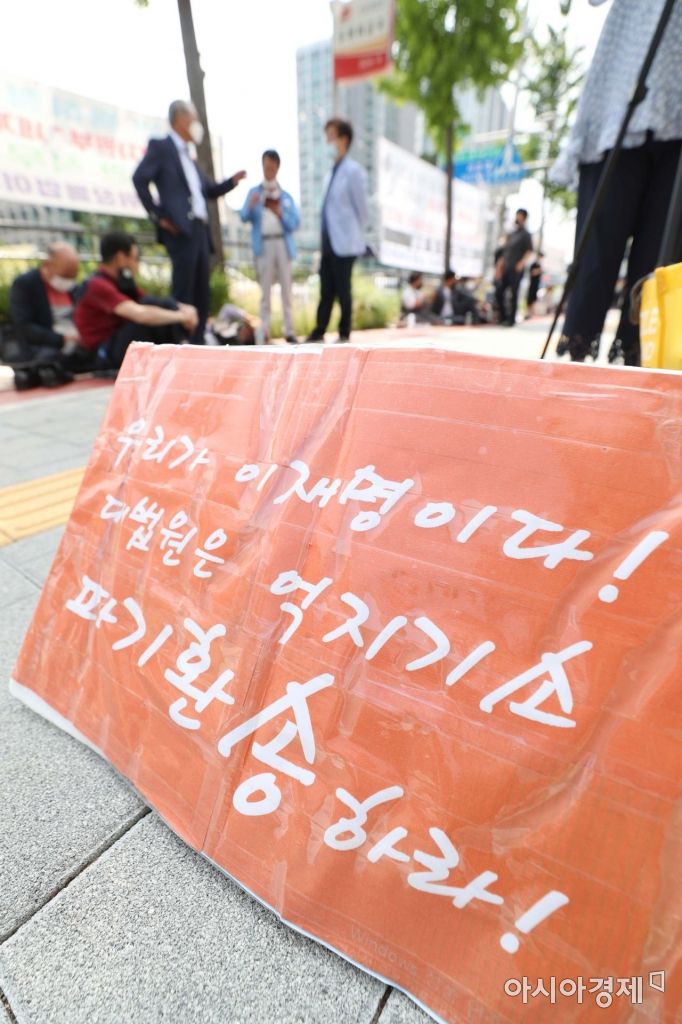 우리가 이재명이다!
대법원은 억지기소
파기환송하라!
Windows
아시아경제